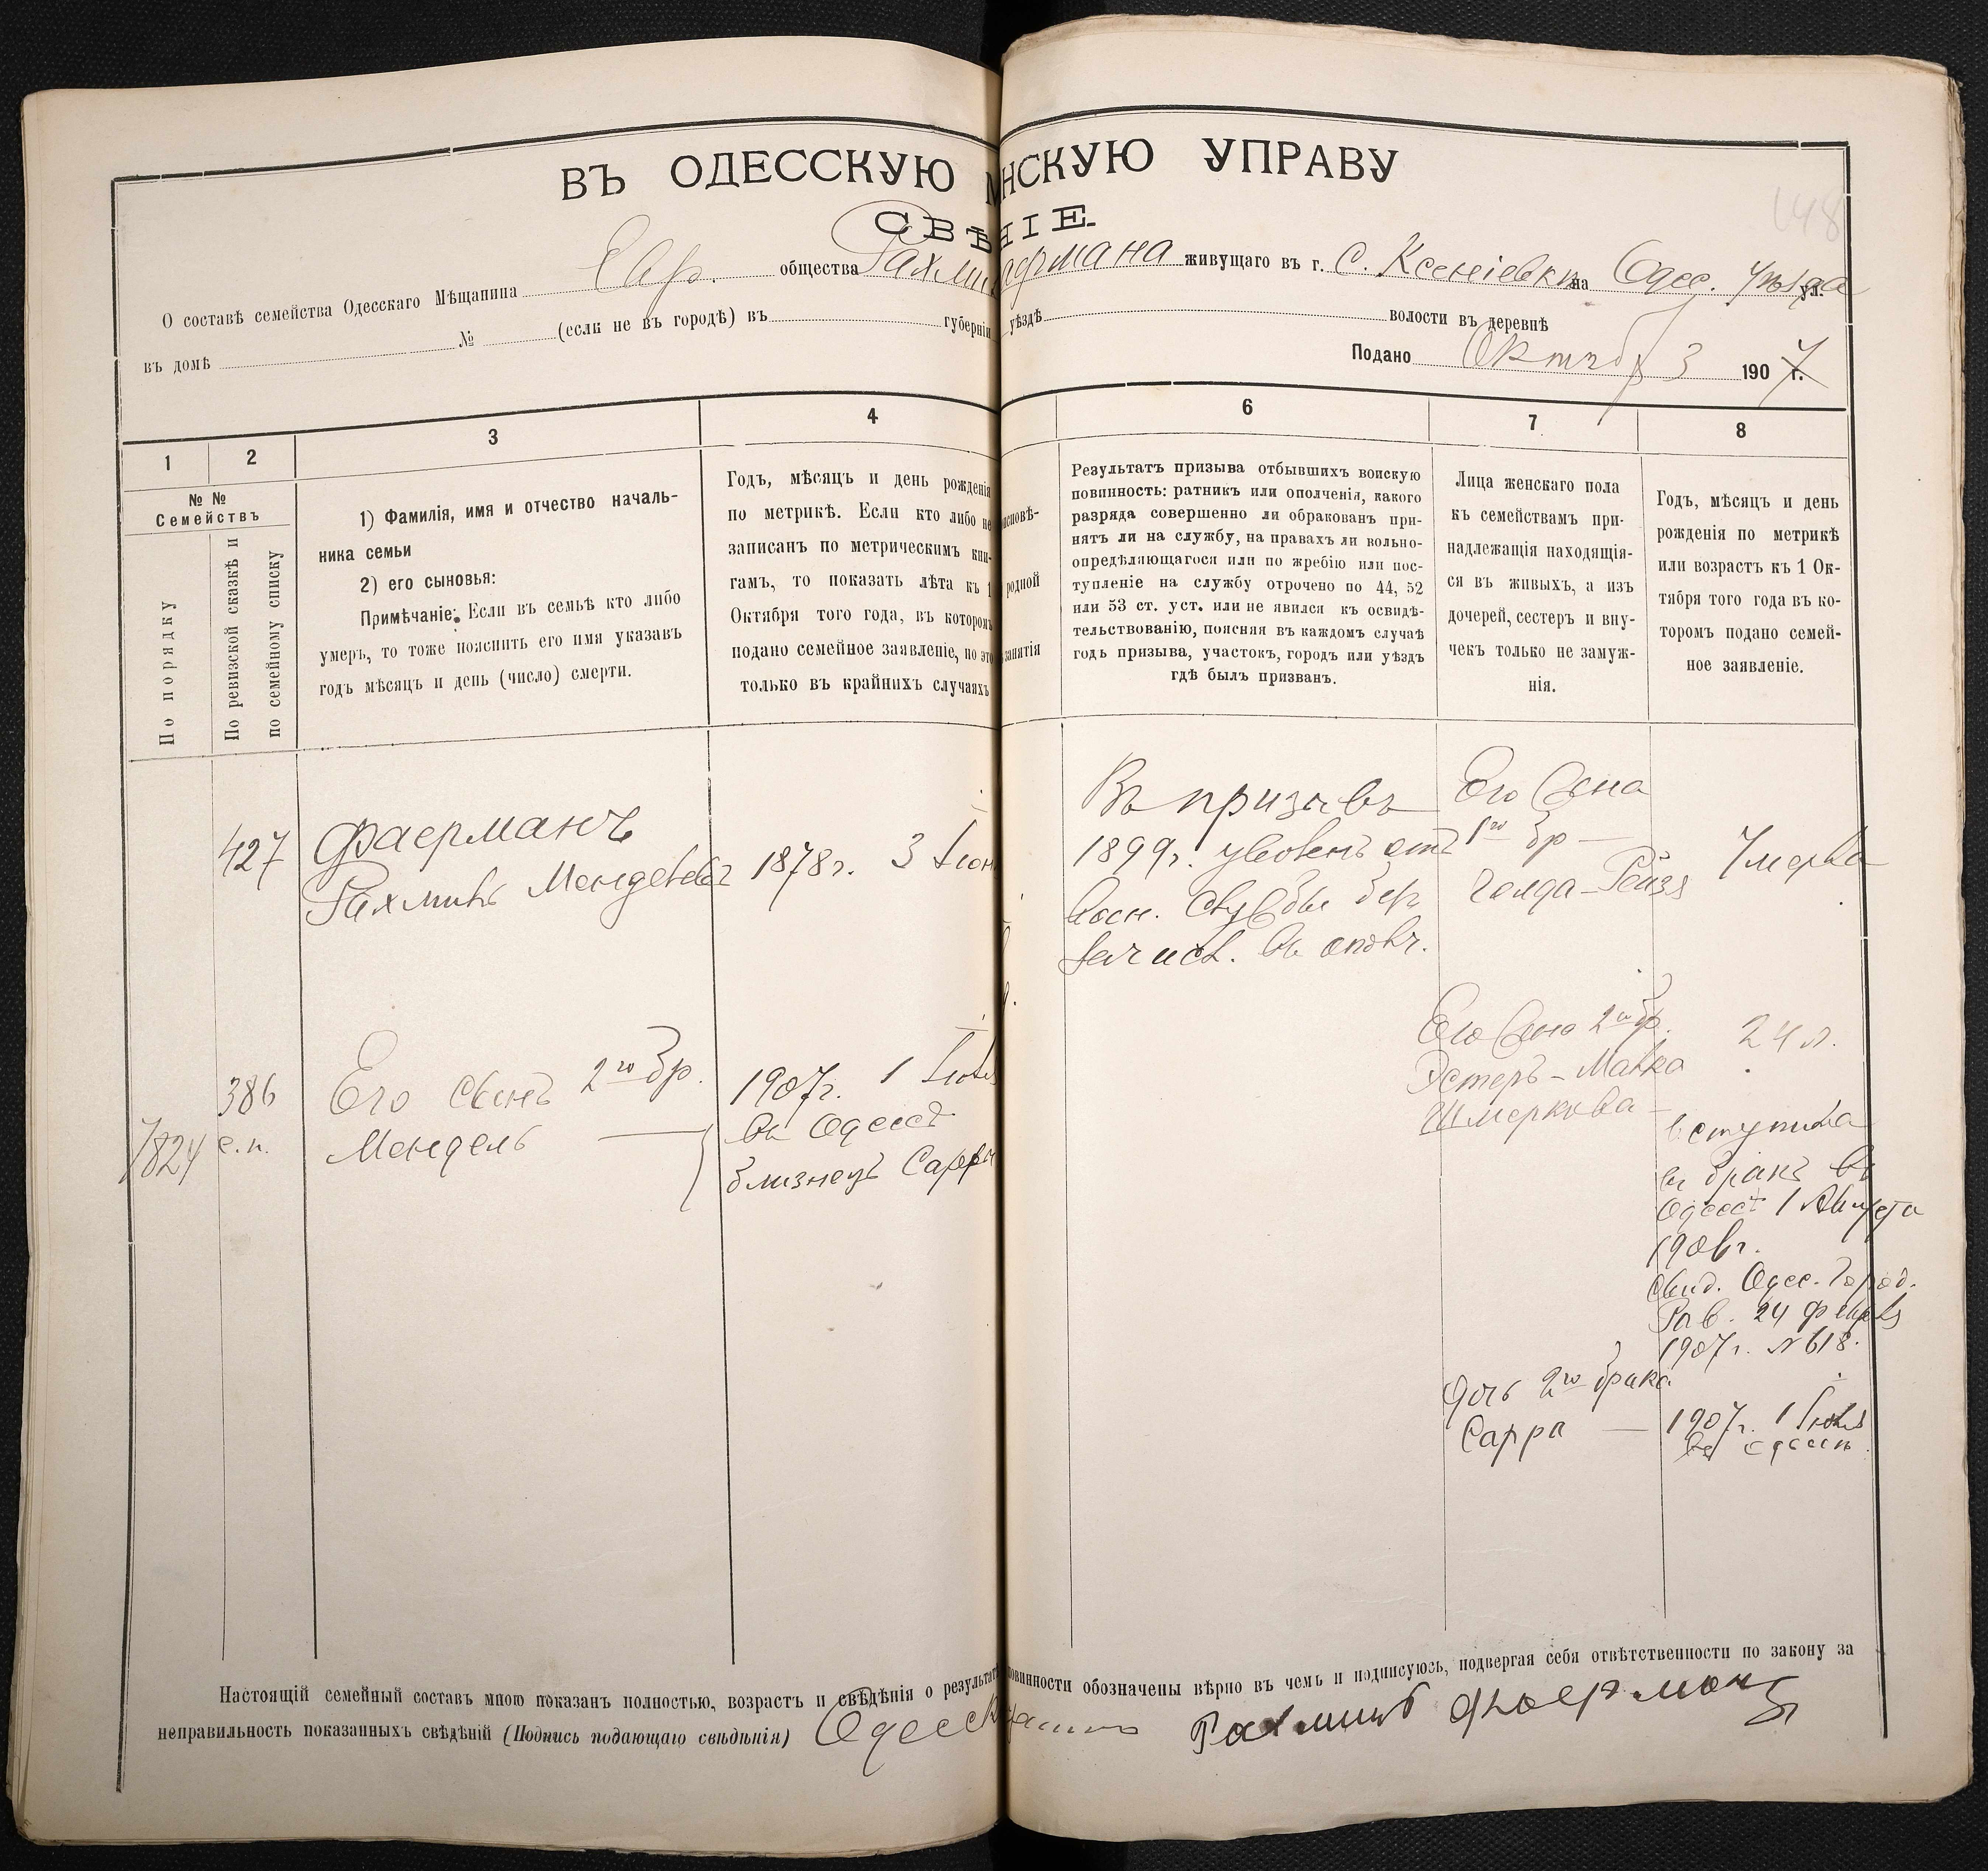 148
ВЪ ОДЕССКУЮ М НСКУЮ УПРАВУ
СВѢ НІЕ.
О составѣ семейства Одесскаго Мѣщанина Евр. общества Рахми аермана живущаго въ г. С. Ксеніевки на Одес. Уѣзда ул.
въ домѣ № (если не въ городѣ) въ губерніи уѣздѣ волости въ деревнѣ
Подано Октябр 3 1907 г.
1 2 3 4 6 7 8
№ №
Семействъ
По порядку
По ревизской сказкѣ и
по семейному списку
1) Фамилія, имя и отчество началь-
ника семьи
2) его сыновья:
Примѣчаніе: Если въ семьѣ кто либо
умеръ, то тоже пояснить его имя указавъ
годъ мѣсяцъ и день (число) смерти.
Годъ, мѣсяцъ и день рожденія
по метрикѣ. Если кто либо не
записанъ по метрическимъ кни-
гамъ, то показать лѣта къ 1
Октября того года, въ которомъ
подано семейное заявленіе, но это
только въ крайнихъ случаяхъ
исповѣ-
родной
занятія
Результатъ призыва отбывшихъ воискую
повинность: ратникъ или ополченія, какого
разряда совершенно ли обракованъ при-
нятъ ли на службу, на правахъ ли вольно-
опредѣляющагося или по жребію или пос-
тупленіе на службу отрочено по 44, 52
или 53 ст. уст. или не явился къ освидѣ-
тельствованію, поясняя въ каждомъ случаѣ
годъ призыва, участокъ, городъ или уѣздъ
гдѣ былъ призванъ.
Лица женскаго пола
къ семействамъ при-
надлежащія находящія-
ся въ живыхъ, а изъ
дочерей, сестеръ и вну-
чекъ только не замуж-
нія.
Годъ, мѣсяцъ и день
рожденія по метрикѣ
или возрастъ къ 1 Ок-
тября того года въ ко-
торомъ подано семей-
ное заявленіе.
427
Фаерманъ
Рахминъ Менделевъ
1878 г. 3 Іюн
Въ призывъ
1899 г. уволенъ отъ
воен. службы
зачисл. въ ополч.
Его жена
1го бр —
Голда-Рейзя
Умерла
386
с.п.
7824
Его сынъ 2го бр.
Мендель —
1907 г. 1 Іюля
въ Одессѣ
близнецъ Сарры
Его жена 2го бр.
Эстеръ-Малка
Шмеркова —
24 л.
вступила
въ бракъ въ
Одессѣ 1 Августа
1906 г.
свид. Одес. Город.
Рав. 24 Февраля
1907 г. № 618.
Дочь 2го брака
Сарра —
1907 г. 1 Іюля
въ Одессѣ
Настоящій семейный составъ мною показанъ полностью, возрастъ и свѣдѣнія о результат повинности обозначены вѣрно въ чемъ и подписуюсь, подвергая себя отвѣтственности по закону за
неправильность показанныхъ свѣдѣній (Подпись подающаго свѣдѣнія) Одесск Рахминъ Фаерманъ